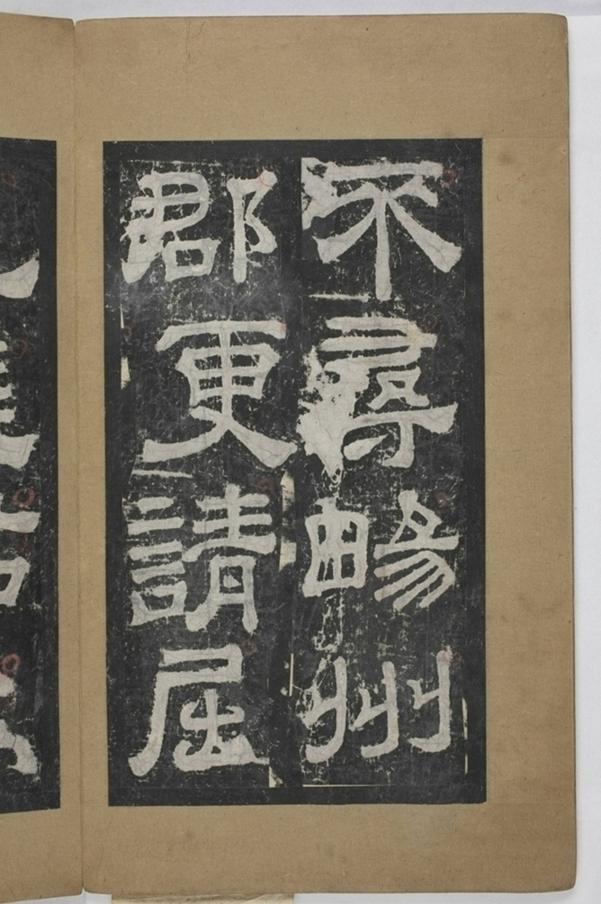 不尋暢州
郡更請屈